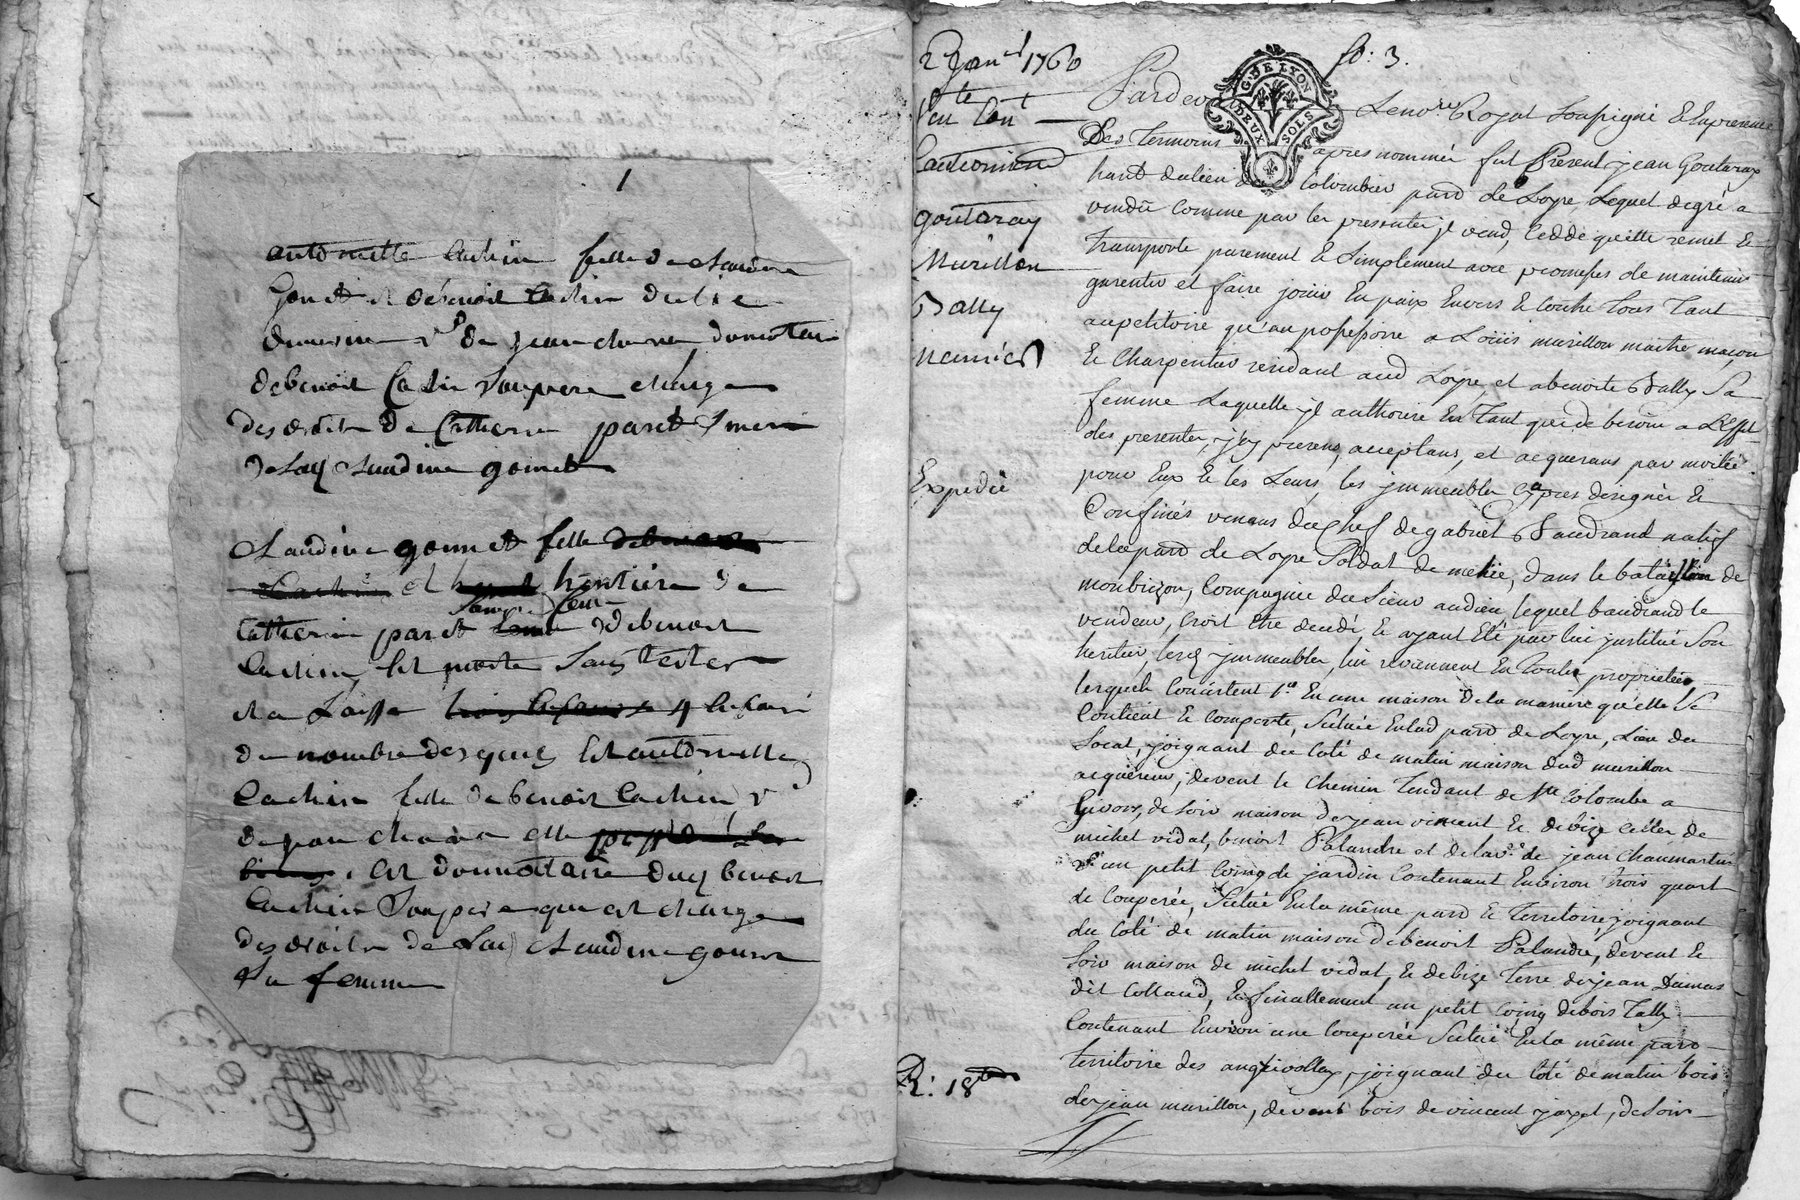 1
antoinette Cachin fille de claudine
Gonet et debenoit Cachin
de jean donnotaire
debenoit Cachin Sonpere chargé
des droits de Catherine paret Smere
de Lad claudine gonnet
Claudine gonnet fille
et heritiere de
Catherine paret debenoit
Cachin, Est morte Sans tester
et a Laissé 4 Enfans
du nombre desquels Est antoinette
Cachin fille de benoit Cachin v
de jean elle
Est donnotaire dud benoit
Cachin Sonpere qui est chargé
des droits de Lad Claudine gonnet
Sa femme
2 Janer 1760
Expedié
goutaray
Murillon
Bally
R: 18
fo: 3.
G. DE LYON
DEUX SOLS
Pardev Le nore Royal Soussigné & En presence
Des Temoins apres nommés fut Present jean Goutaray
hant du lieu de Colombier paroe de Loyre, Lequel de gré a
vendû comme par les presentes jl vend, Cedde quitte remet &
transporte purement & Simplement avec promesses de maintenir
garentir et faire joüir En paix Envers & Contre Tous Tant
aupetitoire qu'au possessoire a Loüis murillon maitre maçon
& Charpentier residant aud Loyre, et abenoite Bally Sa
femme Laquelle jl authorise En Tant que de besoin a L'Effet
des presentes, jcy presens, acceptans, et acquerans par moitié
pour Eux & les Leurs, les jmmeubles cy apres designés &
Confinés venans du Chef de gabriel Baudrand natif
delad paroe de Loyre Soldat de milice, dans le bataillon de
monbrizon, Compagnie du Sieur audieu, lequel baudrand le
vendeur, Croit être decedé, & ayant Eté par lui jnstitué Son
heritier, lesq jmmeubles, lui reviennent En Toutes propriétés
lesquels Consistent 1o En une maison de la maniere qu'elle Se
Contient & comporte, Scituée Enlad paroe de Loyre, Lieu du
Socal, joignant du Coté de matin maison dud murillon
acquereur, devent le Chemin Tendant de Ste Colombe a
Givors, de Soir maison de jean vincent & debize Celles de
michel vidal, benoit Palandre et de la ve de jean Chaumartin
2o un petit Coing de jardin Contenant Environ Trois quart
de Couperée, Scitué Enla même paroe & Territoire, joignant
du Coté de matin maison debenoit Palandre, devent &
Soir maison de michel vidal, & debize Terre de jean Dumas
dit Collaud, Enfinallement un petit Coing debois Tally
Contenant Environ une Couperée Scitué Enla même paroe
Territoire des joignant du Coté de matin bois
de jean murillon, devent bois de vincent jayet, de Soir